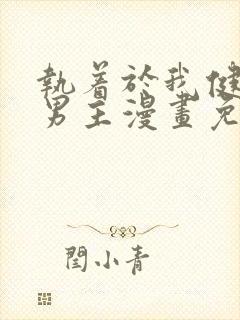 執着於我健
男主漫畫免
閆小青